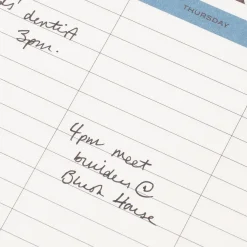 THURSDAY
dentist
3pm.
4pm meet
builders @
Blush House